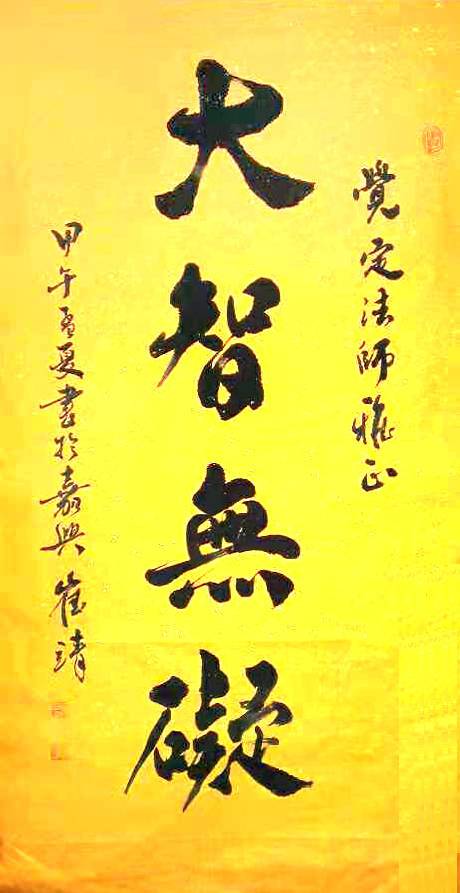 覺定法師雅正
大智無礙
甲午孟夏書於嘉興崔靖